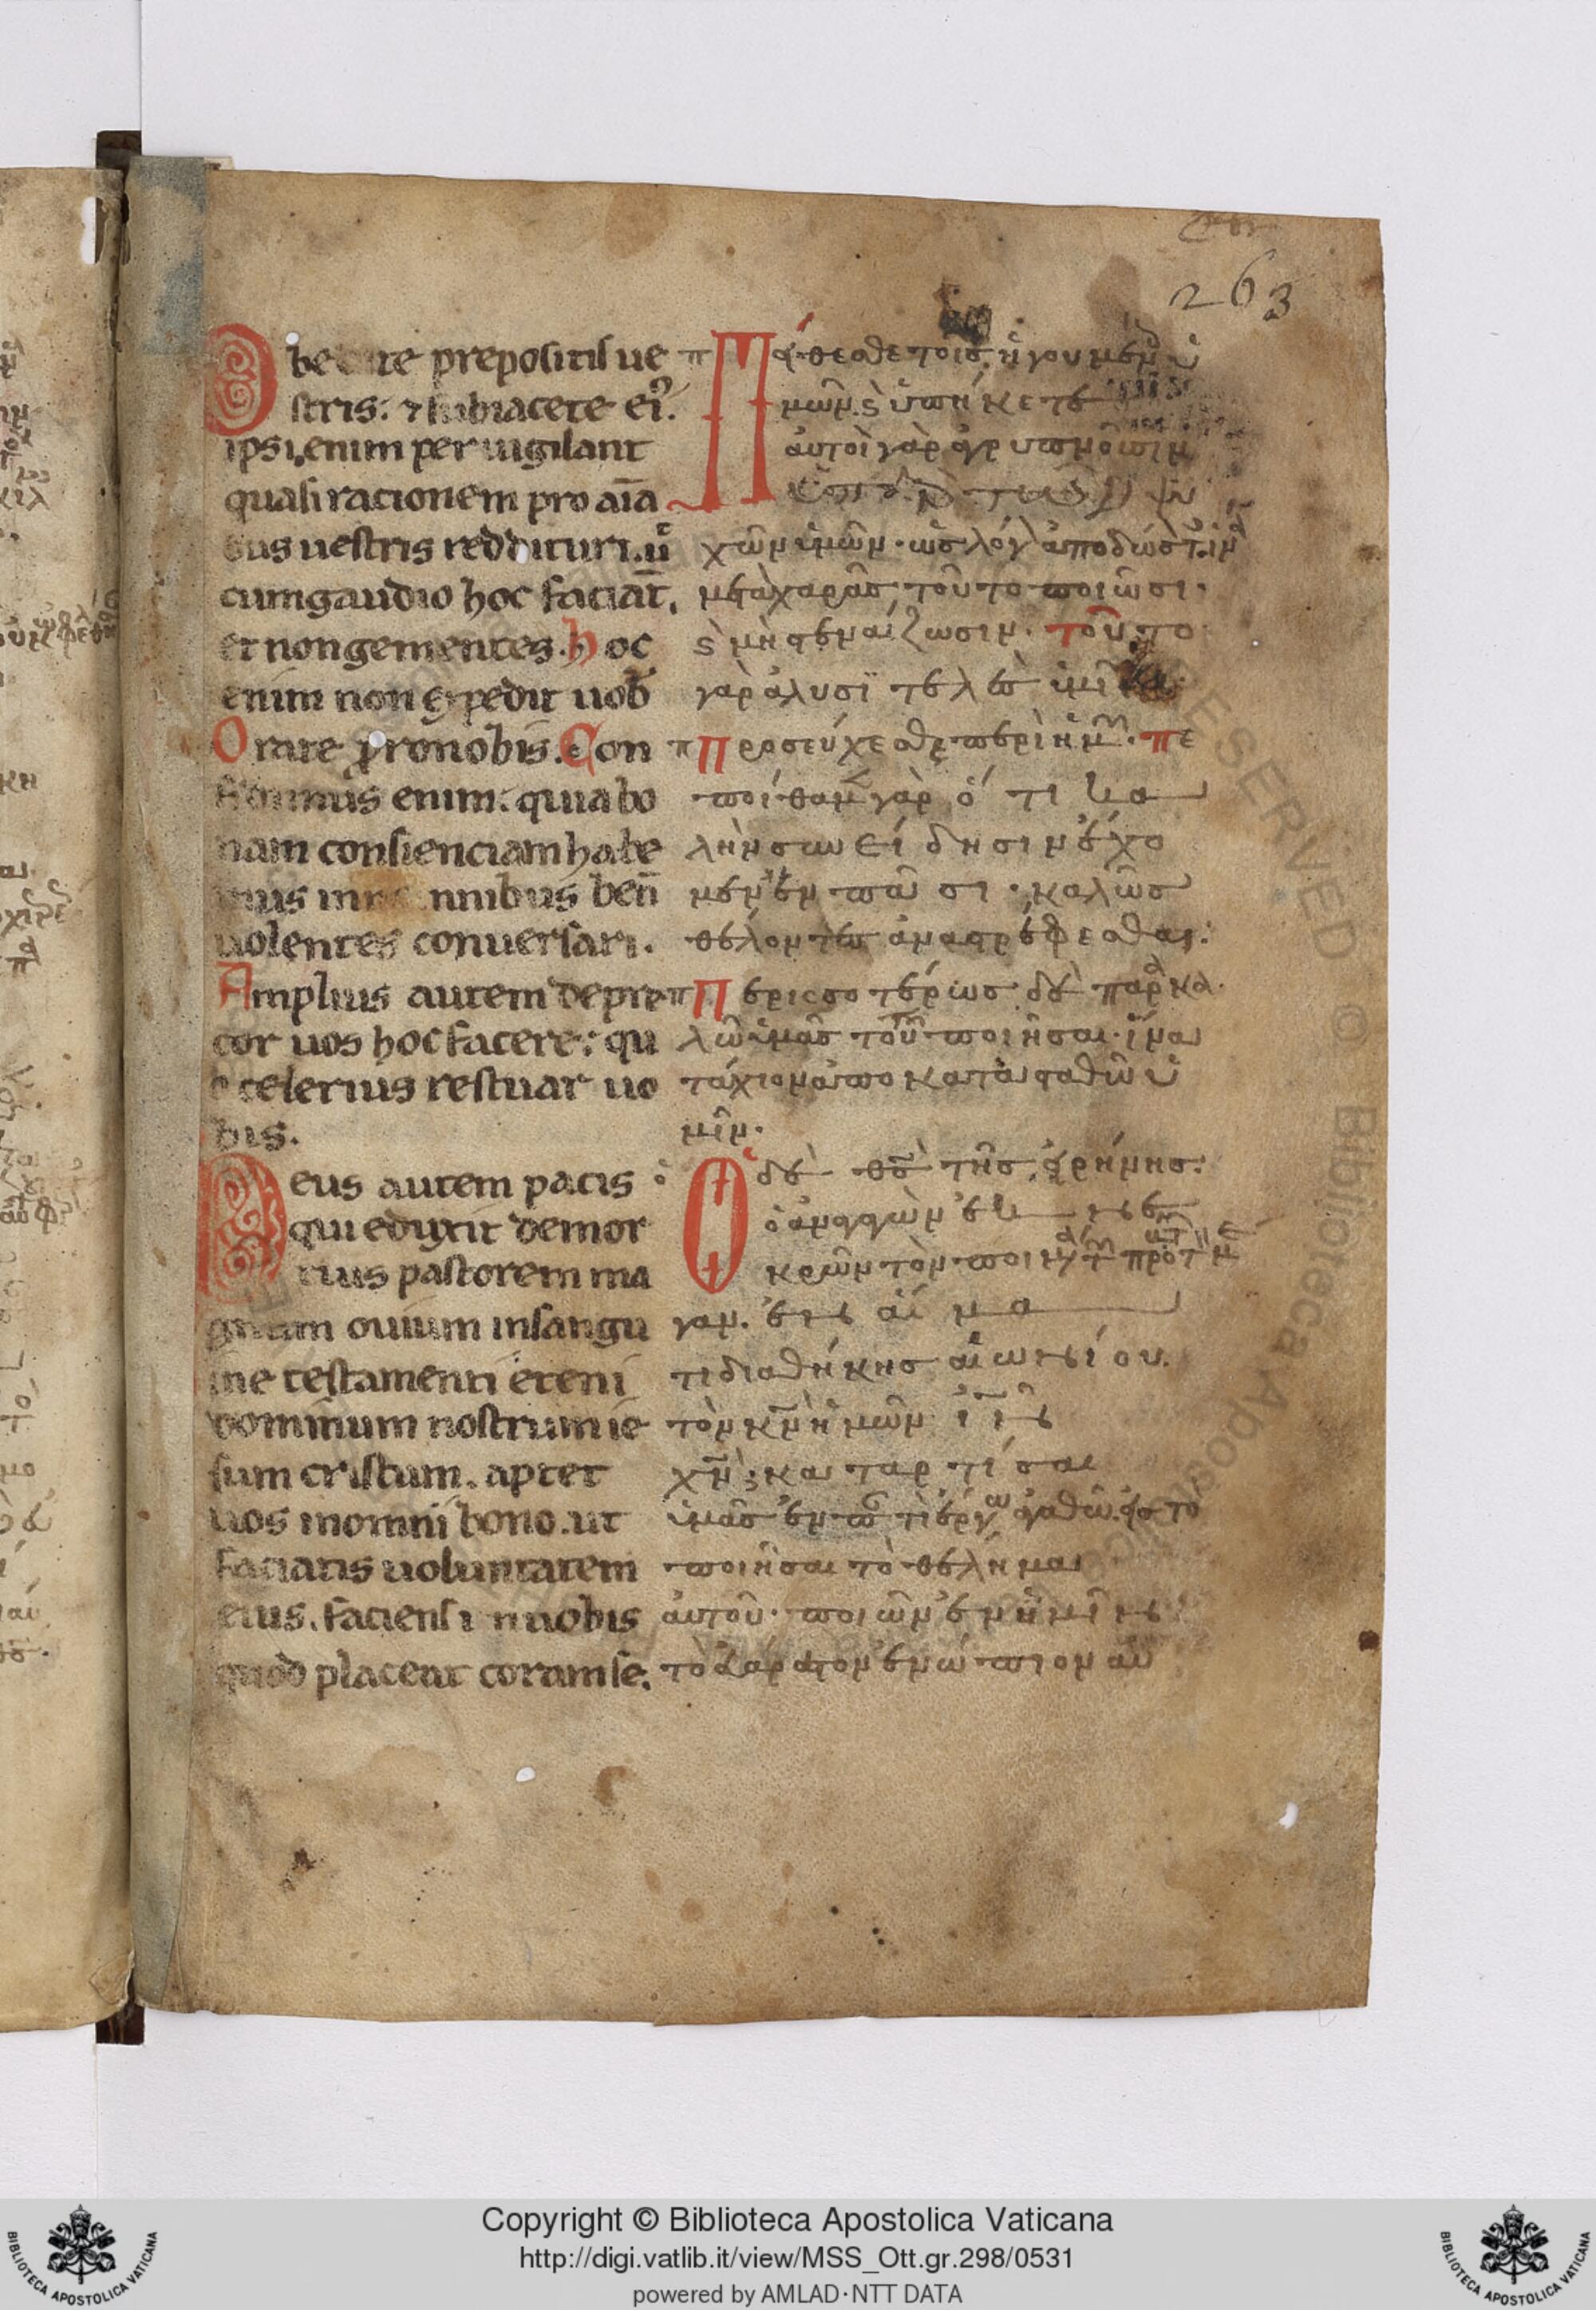 263
Obe re prepositis ue
stris. ⁊ subiacete ei⁹.
ipsi enim peruigilant
quasi racionem pro aīa
bus uestris reddituri. ū
cum gaudio hoc faciāt.
et non gementes. hoc
enim non expedit uob
Orate pro nobis. Con
fidimus enim: quia bo
nam consienciam habe
mus in nnibus ben̄
uolentes conuersari.
Amplius autem depre
cor uos hoc facere: qu
o celerius restuar uo
bis.
Deus autem pacis
qui eduxit de mor
tuis pastorem ma
gnum ouium in sangu
ine testamenti eterni
dominum nostrum ie
sum cristum. aptet
uos in omni bono. ut
faciatis uoluntatem
eius. faciens in uobis
quod placeat coram se.
Πείθεσθε τοῖς ἡγουμεν ὑ
μῶν. ϗ ὑπήκετε
αὐτοὶ γὰρ ἀγρυπνοῦσιν
ψυ
χῶν ὑμῶν. ὡς λόγ ἀποδώσ
μετὰ χαρᾶς τοῦτο ποιῶσι.
ϗ μὴ στεναίζωσιν. τοῦτο
γὰρ ἀλυσϊτελὲς ὑμῖ
Προσεύχεσθε περὶ ἡμῶν. πε
ποίθαμεν γὰρ ὅτι κα
λὴν συνείδησιν ἔχο
μεν ἐν πᾶσι. καλῶς
θέλοντες ἀναστρέφεσθαι:
Περισσοτέρως δὲ παρακα
λῶ ὑμᾶς τοῦτο ποιῆσαι. ἵνα
τάχιον ἀποκατασταθῶ ὑ
μῖν.
Ὁ δὲ θς̄ τῆς εἰρήνης.
ὁ ἀναγαγὼν ἐκ νε
κρῶν τὸν ποιμένα τῶν προβάτων τὸν μέ
γαν. ἐν αἵμα
τι διαθήκης αἰωνίου.
τὸν κν̄ ἡμῶν ἰν̄
χν̄. καταρτίσαι
ὑμᾶς ἐν παντὶ ἔργω ἀγαθῶ. εἰς τὸ
ποιῆσαι τὸ θέλημα
αὐτοῦ. ποιῶν ἐν ἡμῖν
τὸ εὐάρεστον ἐνώπιον αὐ
Copyright © Biblioteca Apostolica Vaticana
http://digi.vatlib.it/view/MSS_Ott.gr.298/0531
powered by AMLAD·NTT DATA